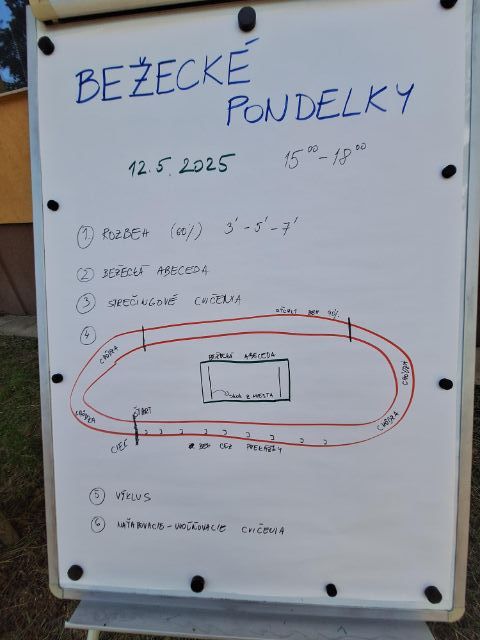 BEŽECKÉ
PONDELKY
12.5.2025 15⁰⁰-18⁰⁰
1 ROZBEH (60%) 3' - 5' - 7'
2 BEŽECKÁ ABECEDA
3 STREČINGOVÉ CVIČENIA
4
RÝCHLY BEH 70%
CHÔDZA
CHÔDZA
BEŽECKÁ ABECEDA
SKOK Z MIESTA
CHÔDZA
CHÔDZA
ŠTART
CIEĽ
BEH CEZ PREKÁŽKY
5 VÝKLUS
6 NAŤAHOVACIE - UVOĽŇOVACIE CVIČENIA